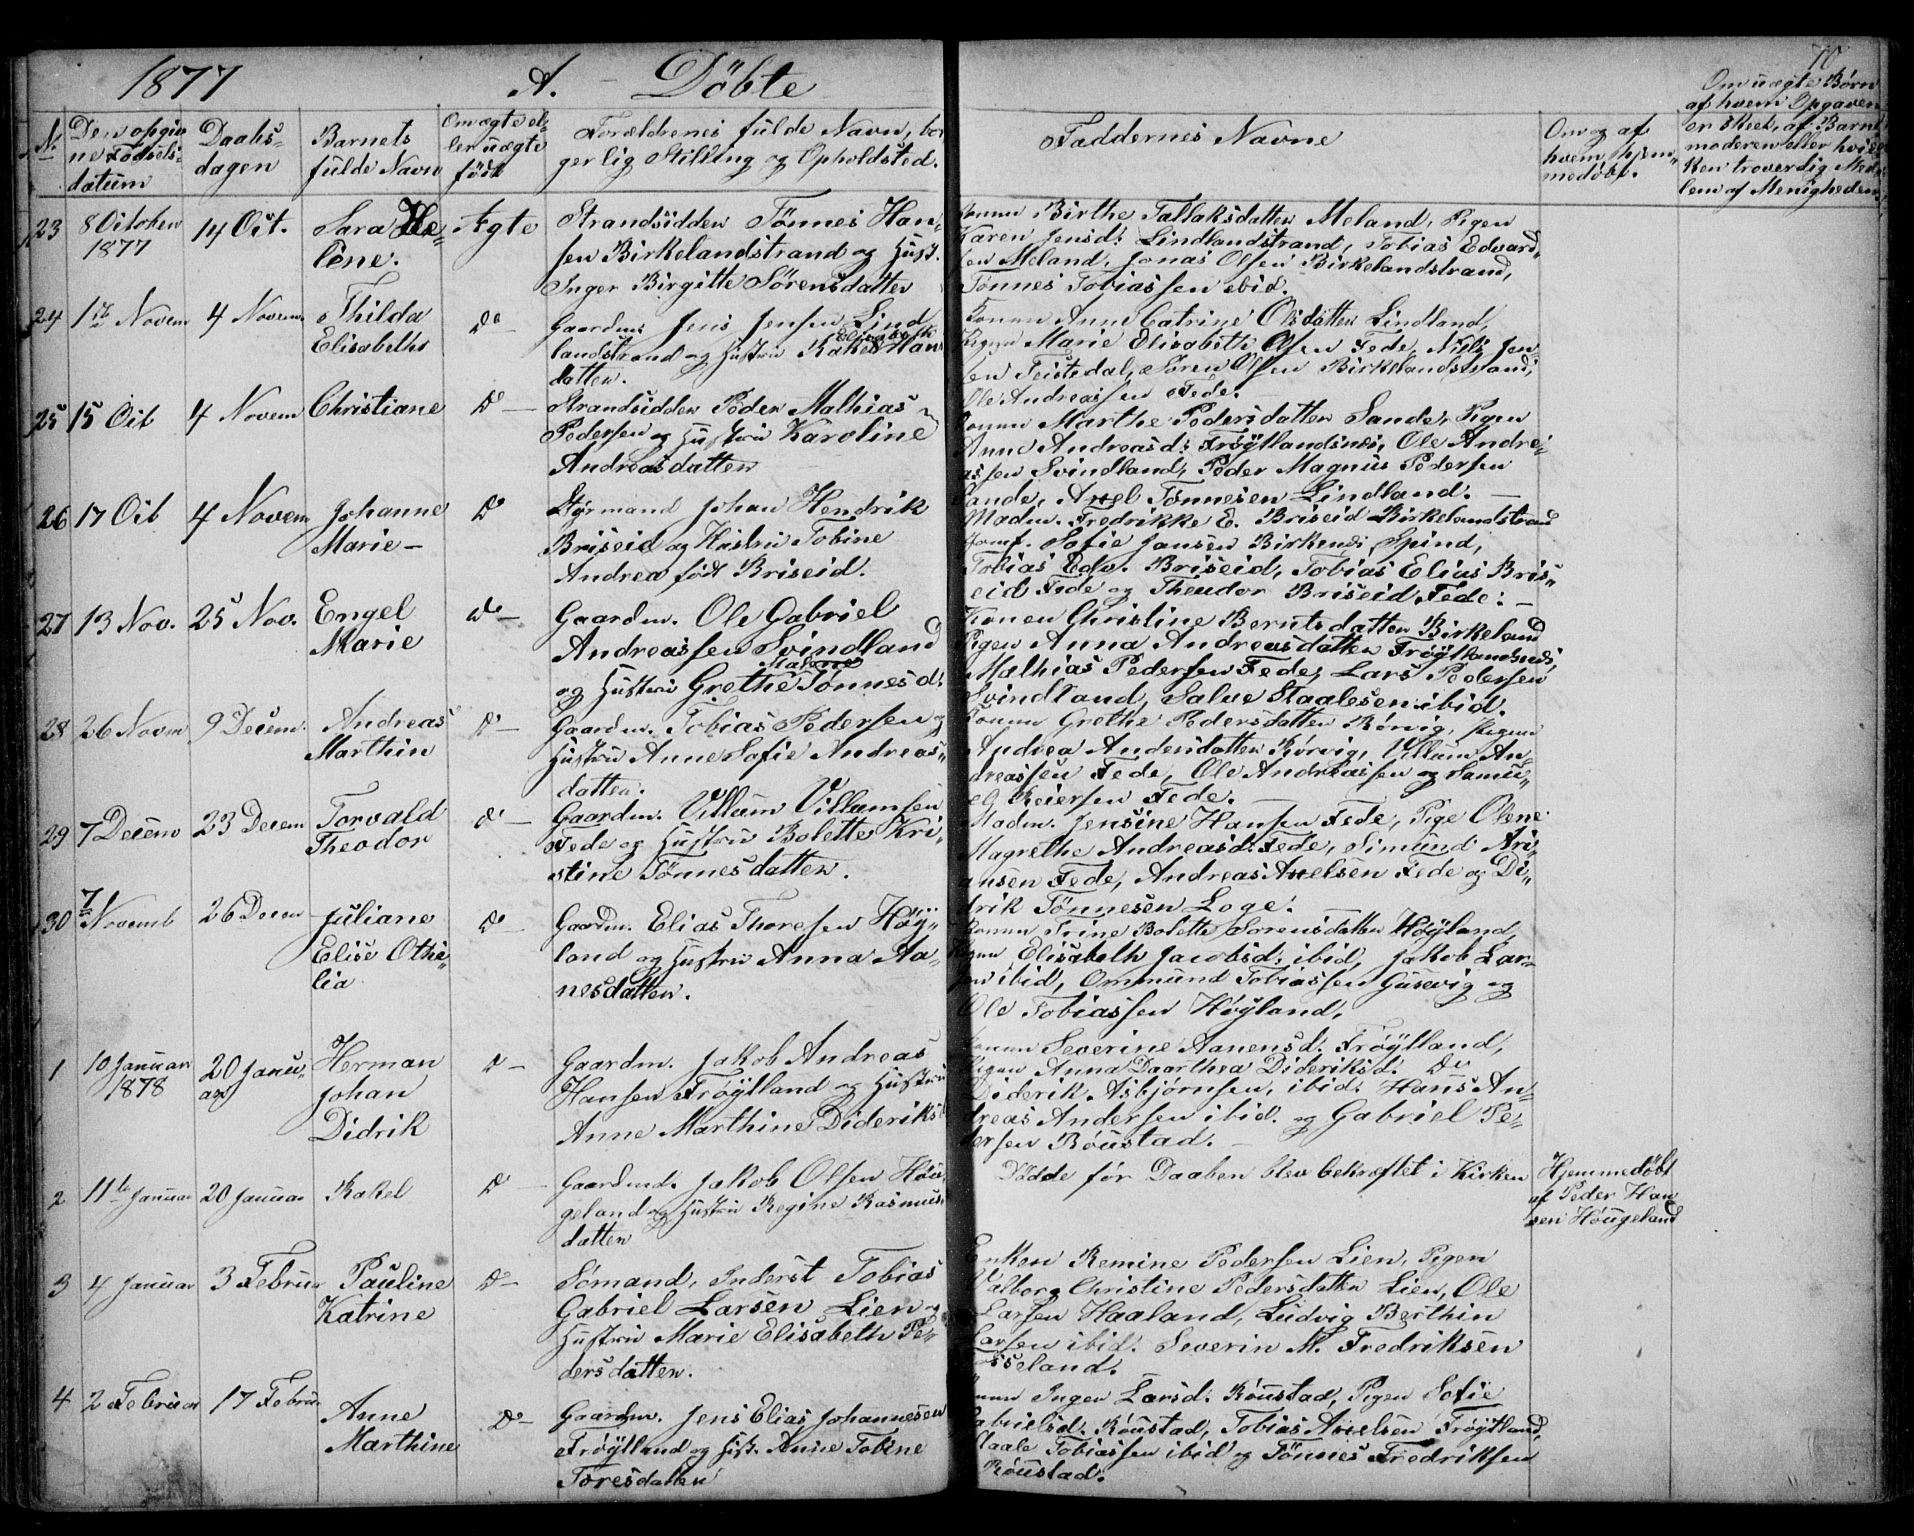 1877 A. Döbte 70
№ Den opgiv
ne Födsels-
datum
Daabs-
dagen
Barnets
fulde Navn
Om ægte el-
ler uægte
födt
Forældrenes fulde Navn, bor
gerlig Stilling og Opholdsted.
Faddernes Navne
Om og af
hvem hjem-
medöbt.
Om uægte Børn
af hvem Opgaven
er skeet, af Barne
moderen eller hvil
ken troverdig Med
lem af Menigheden
23 8 October 1877
14 Oct.
Sara He-
lene.
Ægte
Strandsidder Tönnes Han-
sen Birkelandstrand og Hust.
Inger Birgitte Sörensdatter
Konen Birthe Tallaksdatter Meland, Pigen
Karen Jensd: Lindlandstrand, Tobias Edvard-
sen Meland, Jonas Olsen Birkelandstrand,
Tönnes Tobiassen ibid.
24 1ste Novem
4 Novem
Thilda
Elisabeths
Do
Gaardm: Jens Jensen Lind
landstrand og Hustru Rakel Elisabeth Han
datter.
Konen Anne Catrine Olsdatter Lindland,
Pigen Marie Elisabeth Olsen Fede, Nils Jen-
sen Feistedal, Sören Olsen Birkelandstrand,
Ole Andreassen Fede.
25 15 Oct
4 Novem
Christiane
Do
Strandsidder Peder Mathias
Pedersen og Hustru Karoline
Andreasdatter
Konen Marthe Pedersdatter Sande, Pigen
Anne Andreasd: Fröytlandsnes, Ole Andre-
assen Svindland, Peder Magnus Pedersen
Sande, Axel Tönnesen Lindland.
26 17 Oct
4 Novem
Johanne
Marie
Do
Styrmand Johan Hendrik
Briseid og Hustru Tobine
Andrea födt Briseid.
Madm. Fredrikke E. Briseid Birkelandstrand
Jomf. Sofie Jansen Birkenes Spind,
Tobias Edv. Briseid, Tobias Elias Bris-
eid Fede og Theodor Briseid Fede.
27 13 Nov.
25 Nov.
Engel
Marie
Do
Gaardm. Ole Gabriel
Andreassen Svindland
og Hustru Grethe Malene Tönnesd:
Konen Christine Berntsdatter Birkeland
Pigen Anna Andreasdatter Fröytlandsnes,
Mathias Pedersen Fede, Lars Pedersen
Svindland, Salve Staalesen ibid.
28 26 Novm
9 Decem.
Andreas
Marthin
Do
Gaardm. Tobias Pedersen og
Hustru Anne Sofie Andreas-
datter.
Konen Grethe Pedersdatter Rörvig, Pigen
Andrea Andersdatter Rörvig, Villum An-
dreassen Fede, Ole Andreassen og Samu-
el Reiersen Fede.
29 7 Decem
23 Decem
Torvald
Theodor
Do
Gaardm. Villum Villumsen
Fede og Hustru Bolette Kri-
stine Tönnesdatter.
Madm. Jensine Hansen Fede, Pige Olene
Magrethe Andreasd. Fede, Simund Ari-
ansen Fede, Andreas Axelsen Fede og Di-
drik Tönnesen Loge.
30 7de Novemb
26 Decem
Juliane
Elise Othe-
lia
Do
Gaardm. Elias Thoresen Höy-
land og Hustru Anna Aa-
nesdatter.
Konen Trine Bolette Sorensdatter Höyland,
Pigen Elisabeth Jacobsd: ibid, Jakob Lar-
sen ibid, Ommund Tobiassen Gusevig og
Ole Tobiassen Höyland,
1 10 Januar 1878
20 Janu-
ar
Herman
Johan
Didrik
Do
Gaardm. Jakob Andreas
Hansen Fröytland og Hustru
Anne Marthine Dideriks
Konen Severine Aanensd: Fröytland,
Pigen Anna Daarthea Dideriksd: Do
Diderik Asbjörnsen, ibid: Hans An-
dreas Andersen ibid. og Gabriel Pe-
dersen Röustad.
2 11te Januar
20 Januar
Rakel
Do
Gaardmd. Jakob Olsen Höu
geland og Hustru Regine Rasmus
datter
Dödde för Daaben blev bekræftet i Kirken
Hjemmedöbt
af Peder Han
sen Höugeland
3 4 Januar
3 Februar
Pauline
Katrine
Do
Sömand, Inderst Tobias
Gabriel Larsen Lien og
Hustru Marie Elisabeth Pe-
dersdatter.
Enken Remine Pedersen Lien, Pigen
Valborg Christine Pedersdatter Lien, Ole
Larsen Haaland, Ludvig Berthin
Larsen ibid. Severin M. Fredriksen
sseland.
4 2 Februar
17 Februar
Anne
Marthine
Do
Gaardm. Jens Elias Johannesen
Fröytland og Hust. Anne Tobine
Toresdatter
Konen Inger Larsd: Röustad, Pigen Sofie
Gabrielsd. Röustad, Tobias Axelsen Fröytland,
Staale Tobiassen ibid og Tönnes Fredriksen
Röustad.